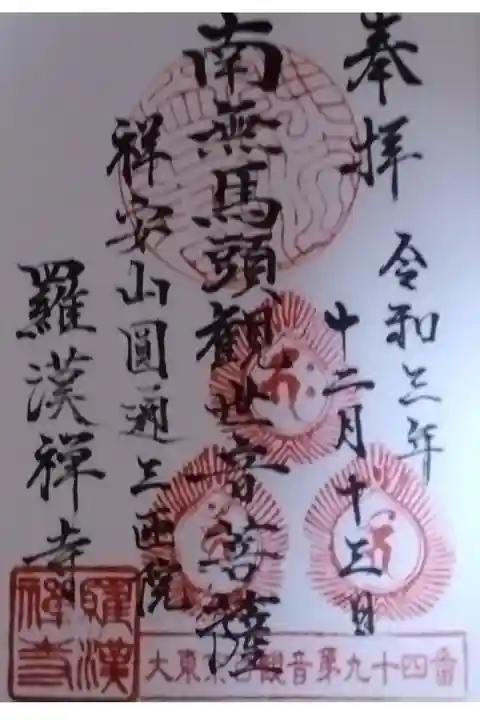 奉拝
令和三年
十二月十三日
南無馬頭観世音菩薩
祥安山圓通三匝院
羅漢禅寺
羅漢
禅寺
大東京百観音第九十四番